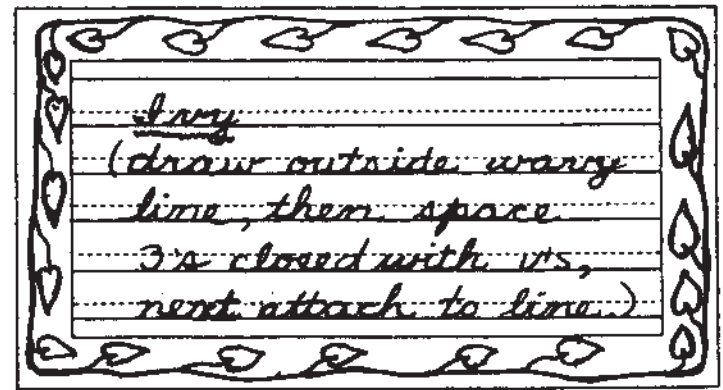 Ivy
(draw outside wavy
line, then space
3's closed with v's,
next attach to line.)